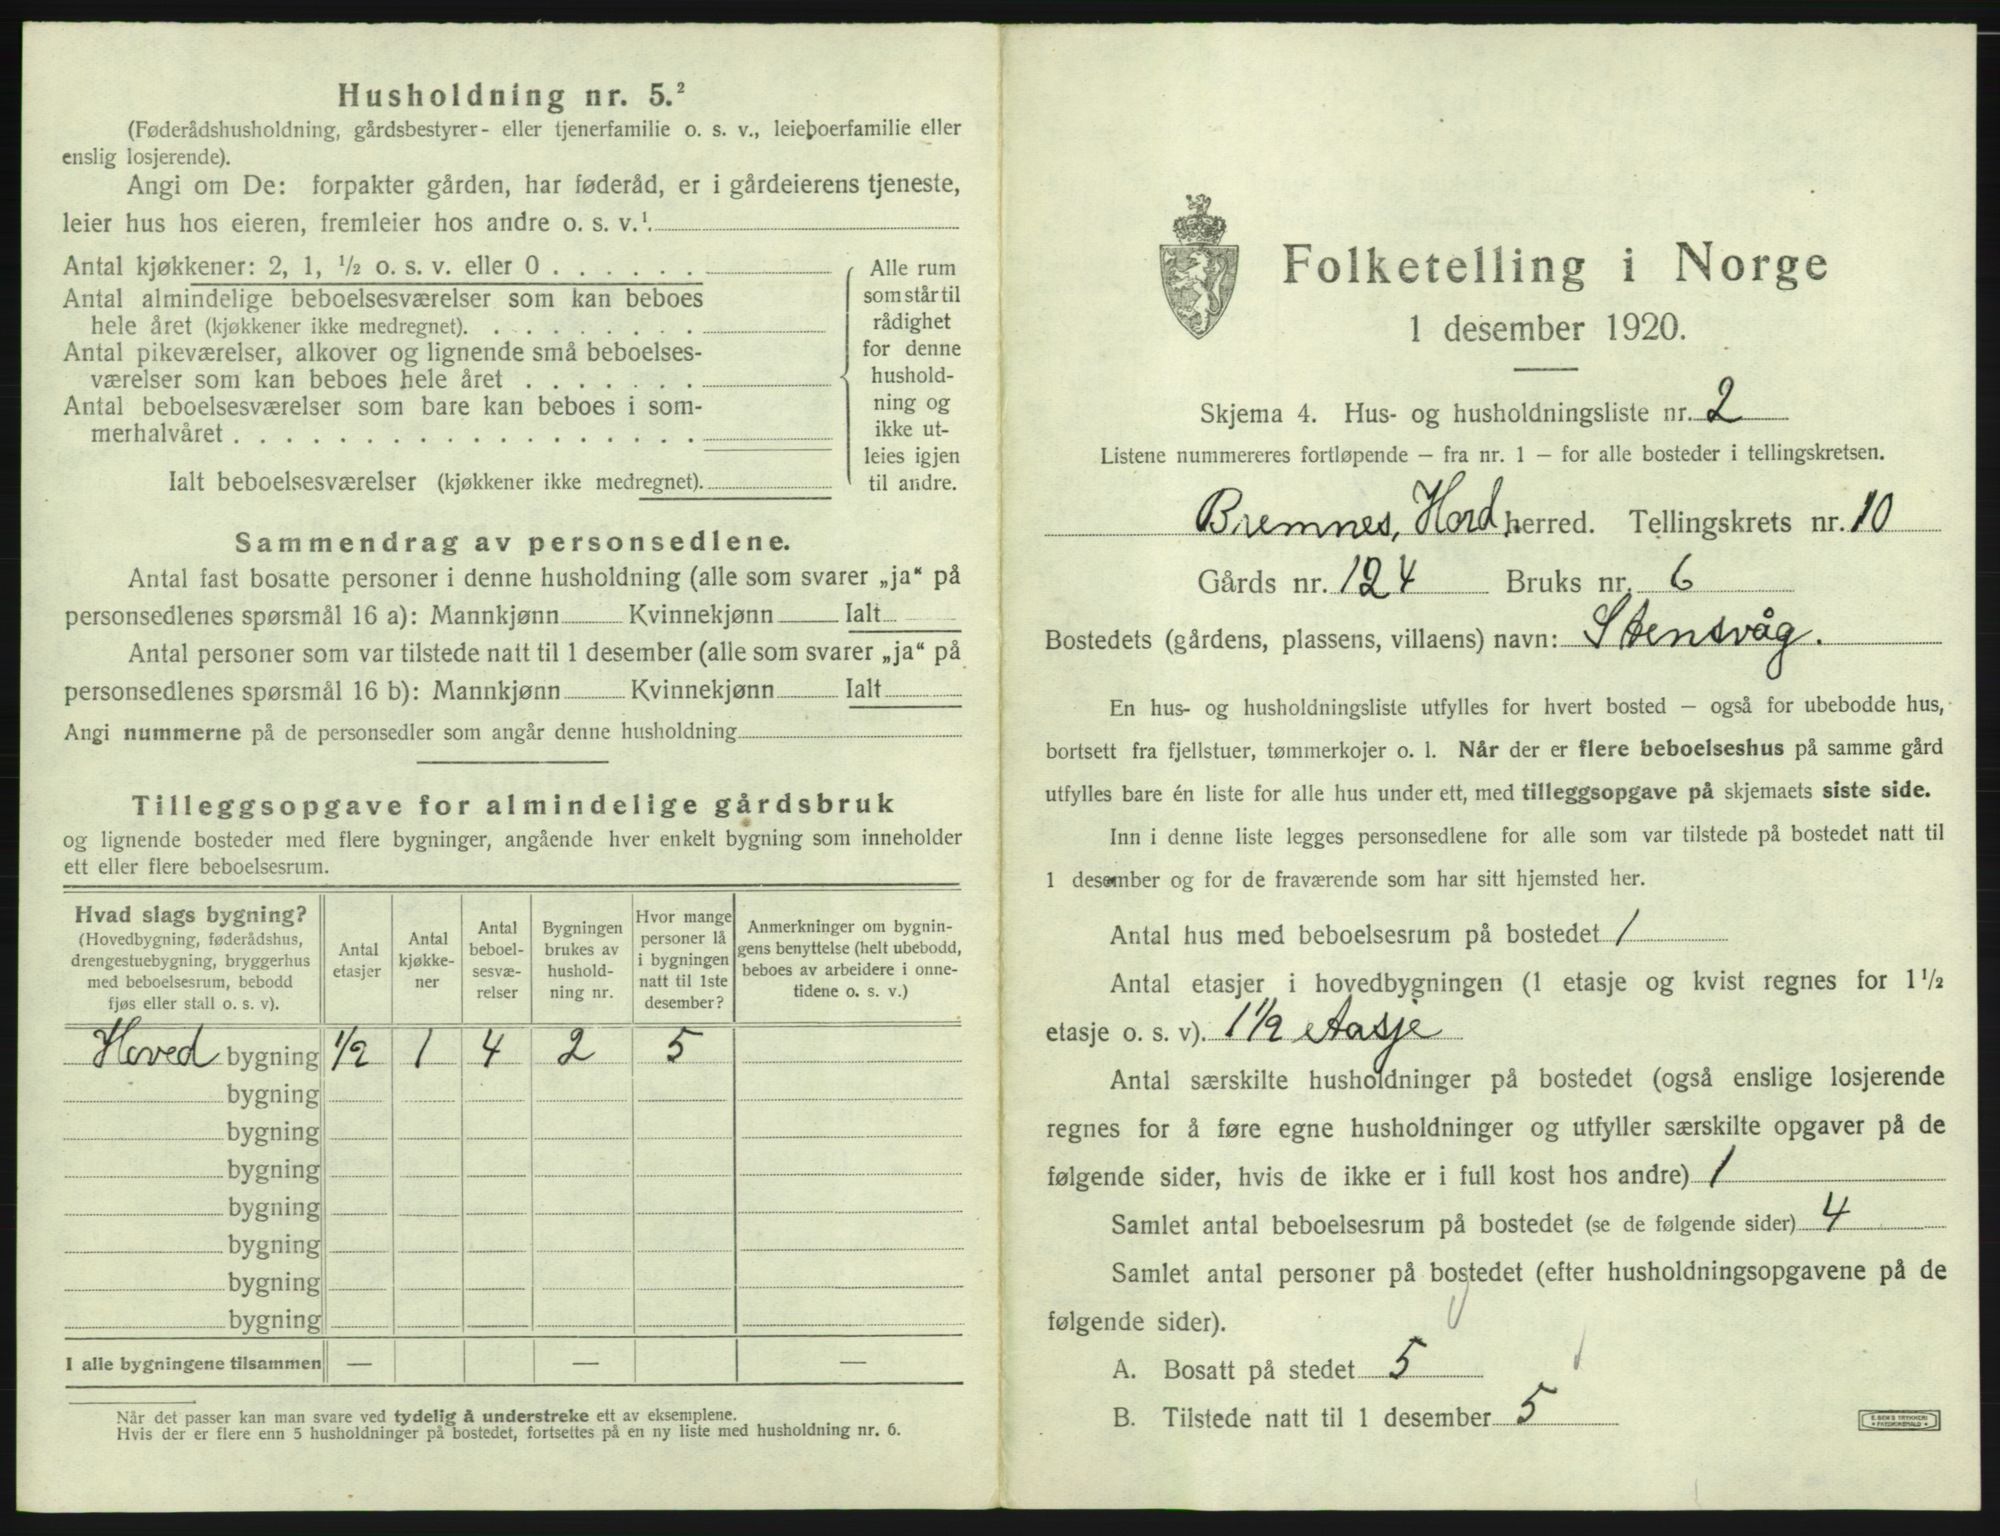 Husholdning nr. 5.²
(Føderådshusholdning, gårdsbestyrer- eller tjenerfamilie o. s. v., leieboerfamilie eller
enslig losjerende).
Angi om De: forpakter gården, har føderåd, er i gårdeierens tjeneste,
leier hus hos eieren, fremleier hos andre o. s. v.¹.
Antal kjøkkener: 2, 1, ½ o. s. v. eller 0 . . . . . .
Antal almindelige beboelsesværelser som kan beboes
hele året (kjøkkener ikke medregnet). . . . . . . . .
Antal pikeværelser, alkover og lignende små beboelses-
værelser som kan beboes hele året . . . . . . .
Antal beboelsesværelser som bare kan beboes i som-
merhalvåret . . . . . . . . . . . . . . . . . .
Ialt beboelsesværelser (kjøkkener ikke medregnet).
Alle rum
som står til
rådighet
for denne
hushold-
ning og
ikke ut-
leies igjen
til andre.
Sammendrag av personsedlene.
Antal fast bosatte personer i denne husholdning (alle som svarer „ja“ på
personsedlenes spørsmål 16 a): Mannkjønn Kvinnekjønn Ialt
Antal personer som var tilstede natt til 1 desember (alle som svarer „ja“ på
personsedlenes spørsmål 16 b): Mannkjønn Kvinnekjønn Ialt
Angi nummerne på de personsedler som angår denne husholdning
Tilleggsopgave for almindelige gårdsbruk
og lignende bosteder med flere bygninger, angående hver enkelt bygning som inneholder
ett eller flere beboelsesrum.
Hvad slags bygning?
(Hovedbygning, føderådshus,
drengestuebygning, bryggerhus
med beboelsesrum, bebodd
fjøs eller stall o. s. v).
Antal
etasjer
Antal
kjøkke-
ner
Antal
beboel-
sesvæ-
relser
Bygningen
brukes av
hushold-
ning nr.
Hvor mange
personer lå
i bygningen
natt til 1ste
desember?
Anmerkninger om bygnin-
gens benyttelse (helt ubebodd,
beboes av arbeidere i onne-
tidene o. s. v.)
Hoved bygning 1/2 1 4 2 5
bygning
bygning
bygning
bygning
bygning
bygning
bygning
I alle bygningene tilsammen — — —
Når det passer kan man svare ved tydelig å understreke ett av eksemplene.
Hvis der er flere enn 5 husholdninger på bostedet, fortsettes på en ny liste med husholdning nr. 6.
Folketelling i Norge
1 desember 1920.
Skjema 4. Hus- og husholdningsliste nr. 2
Listene nummereres fortløpende – fra nr. 1 – for alle bosteder i tellingskretsen.
Bremnes, Hord herred. Tellingskrets nr. 10
Gårds nr. 124 Bruks nr. 6
Bostedets (gårdens, plassens, villaens) navn: Stensvåg.
En hus- og husholdningsliste utfylles for hvert bosted – også for ubebodde hus,
bortsett fra fjellstuer, tømmerkojer o. l. Når der er flere beboelseshus på samme gård
utfylles bare én liste for alle hus under ett, med tilleggsopgave på skjemaets siste side.
Inn i denne liste legges personsedlene for alle som var tilstede på bostedet natt til
1 desember og for de fraværende som har sitt hjemsted her.
Antal hus med beboelsesrum på bostedet 1
Antal etasjer i hovedbygningen (1 etasje og kvist regnes for 1½
etasje o. s. v). 1 1/2 etasje
Antal særskilte husholdninger på bostedet (også enslige losjerende
regnes for å føre egne husholdninger og utfyller særskilte opgaver på de
følgende sider, hvis de ikke er i full kost hos andre) 1
Samlet antal beboelsesrum på bostedet (se de følgende sider) 4
Samlet antal personer på bostedet (efter husholdningsopgavene på de
følgende sider).
A. Bosatt på stedet 5
B. Tilstede natt til 1 desember 5